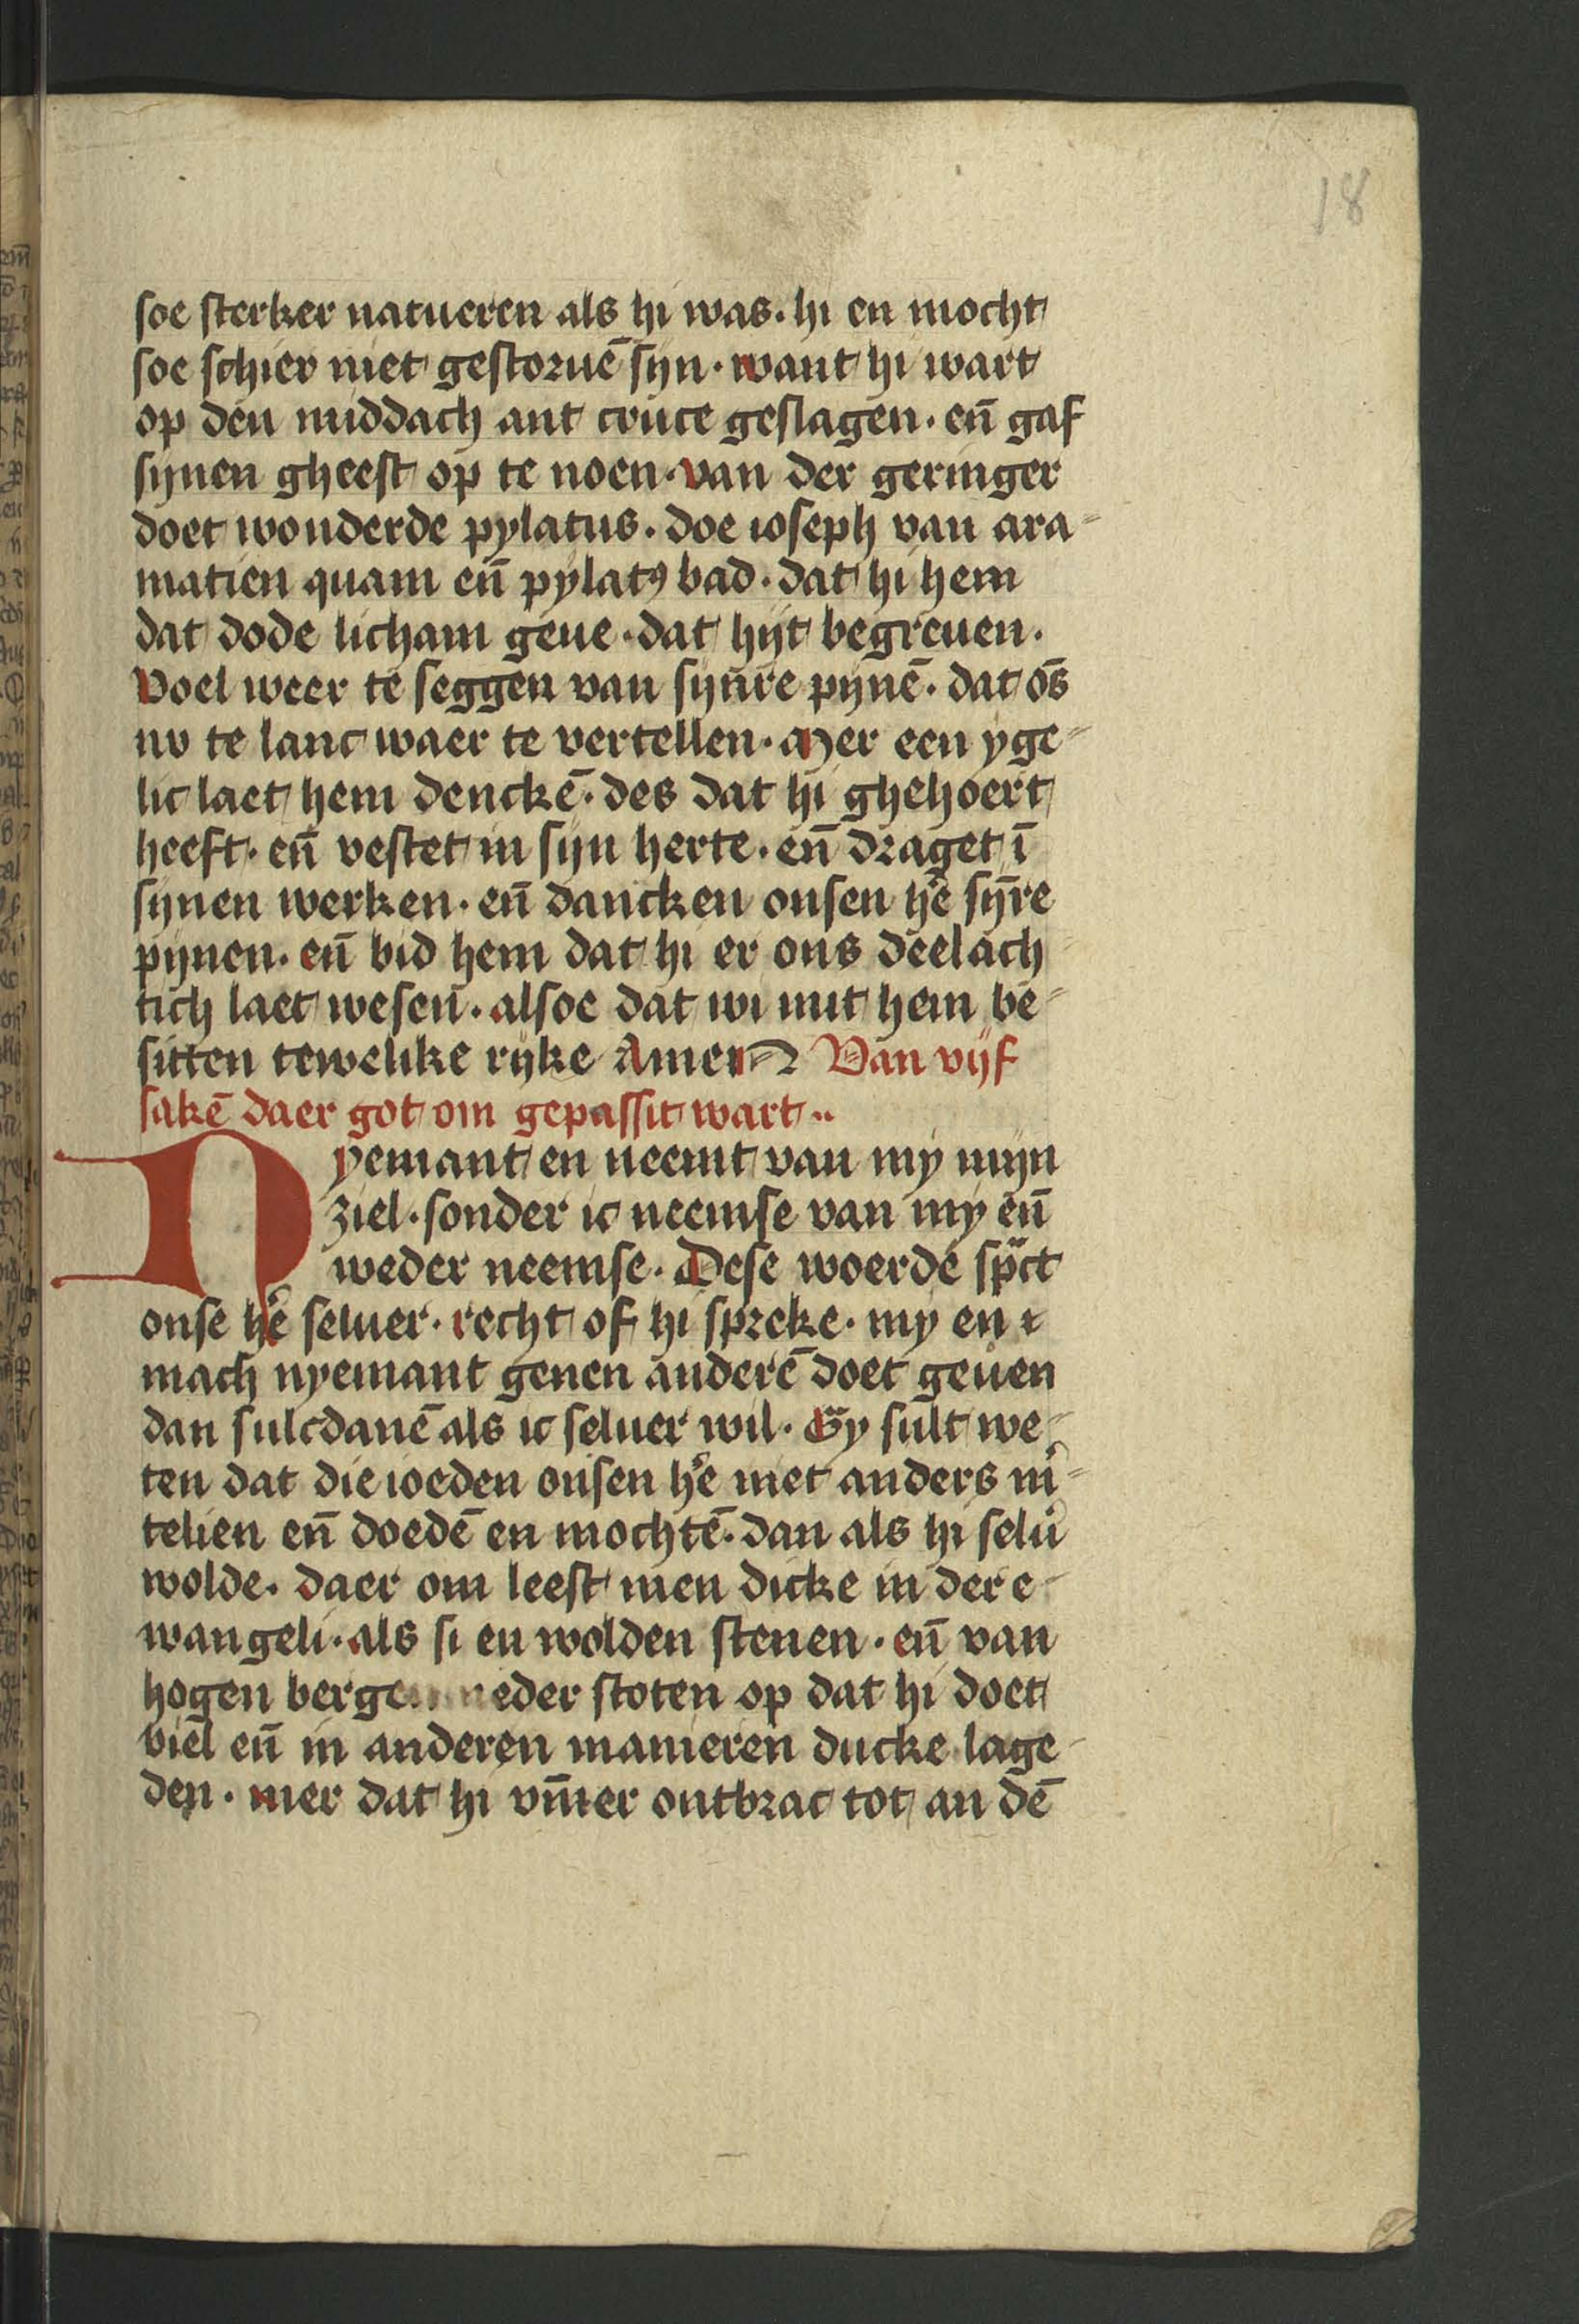 18
soe sterker natueren als hi was · hi en mocht
soe schier niet gestoruē sijn · want hi wart
op den middach ant cruce geslagen · eñ gaf
sijnen gheest op te noen · van der geringer
doet wonderde pylatus · doe ioseph van ara-
matien quam eñ pylatꝰ bad · dat hi hem
dat dode licham geue · dat hijt begreuen ·
Voel weer te seggen van sijnre pijnē · dat ōs
nv te lanc waer te vertellen · Mer een yge-
lic laet hem denckē · des dat hi ghehoert
heeft · eñ vestet in sijn herte · eñ draget ī
sijnen werken · eñ dancken onsen hē sijr̄e
pijnen · eñ bid hem dat hi er ons deelach-
tich laet wesen · alsoe dat wi mit hem be-
sitten tewelike rijke Amen Van vijf
sakē daer got om gepassit wart ··
Nyemant en neemt van my mijn
ziel · sonder ic neemse van my eñ
weder neemse · Dese woerde spᵃct
onse hē seluer · recht of hi spreke · my en
mach nyemant genen anderē doet geuen
dan sulcdanē als ic seluer wil · Gy sult we-
ten dat die ioeden onsen hē niet anders m-
telien eñ doedē en mochtē · dan als hi selu᷑
wolde · daer om leest men dicke in der e-
wangeli · als si en wolden stenen · eñ van
hogen bergen neder stoten op dat hi doet
viel eñ in anderen manieren ducke lage-
den · mer dat hi vm̄er ontbrac tot an dē